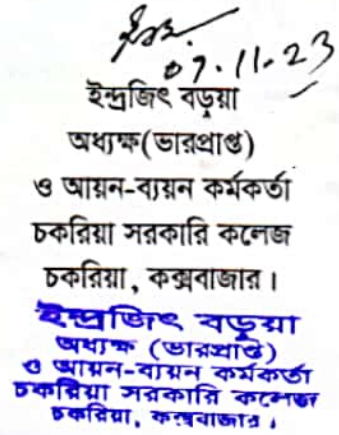 07.11.23
ইন্দ্রজিৎ বড়ুয়া
অধ্যক্ষ(ভারপ্রাপ্ত)
ও আয়ন-ব্যয়ন কর্মকর্তা
চকরিয়া সরকারি কলেজ
চকরিয়া, কক্সবাজার।
ইন্দ্রজিৎ বড়ুয়া
অধ্যক্ষ (ভারপ্রাপ্ত)
ও আয়ন-ব্যয়ন কর্মকর্তা
চকরিয়া সরকারি কলেজ
চকরিয়া, কক্সবাজার।